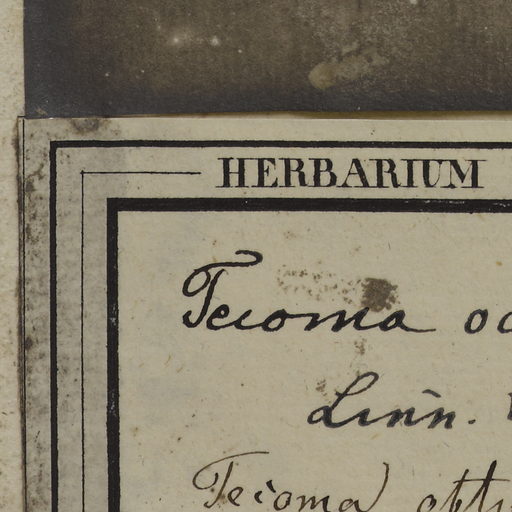 HERBARIUM
Tecoma
Linn.
Tecoma